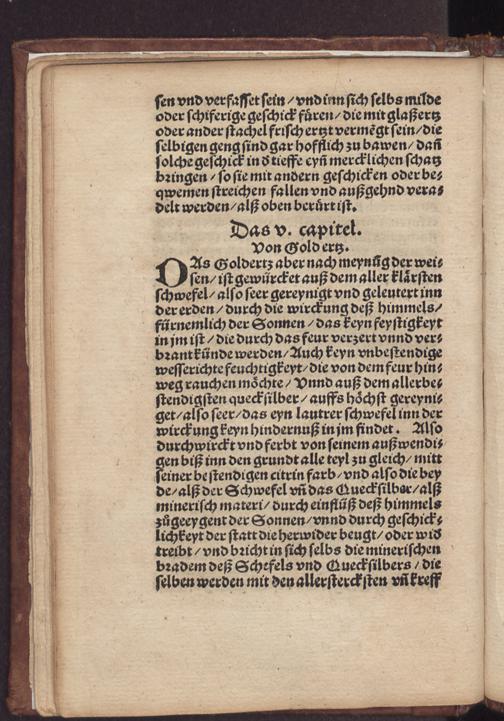 sen vnd verfasset sein / vnd inn sich selbs milde
oder schiferige geschick füren / die mit glaßertz
oder ander stachel frisch ertzt vermēgt sein / die
selbigen geng sind gar hofflich zu bawen / dañ
solche geschick in d̓ tieffe eyñ mercklichen schatz
bringen / so sie mit andern geschicken oder be⸗
qwemen streichen fallen vnd außgehnd vera⸗
delt werden / alß oben berürt ist.
Das v. capitel.
Von Gold ertz.
DAs Goldertz aber nach meynūg der wei⸗
sen / ist gewürcket auß dem aller klärsten
schwefel / also seer gereynigt vnd geleutert inn
der erden / durch die wirckung deß himmels /
fürnemlich der Sonnen / das keyn feystigkeyt
in jm ist / die durch das feur verzert vnnd ver⸗
brant künde werden / Auch keyn vnbestendige
wesserichte feuchtigkeyt / die von dem feur hin⸗
weg rauchen möchte / Vnnd auß dem allerbe⸗
stendigsten quecksilber / auffs höchst gereyni⸗
get / also seer / das eyn lautrer schwefel inn der
wirckung keyn hindernuß in jm findet. Also
durchwirckt vnd ferbt von seinem außwendi⸗
gen biß inn den grundt alle teyl zu gleich / mitt
seiner bestendigen citrin farb / vnd also die bey
de / alß der Schwefel vñ das Quecksilber / alß
minerisch materi / durch einflüß deß himmels
zůgeeygent der Sonnen / vnnd durch geschick⸗
lichkeyt der statt die herwider beugt / oder wid̓
treibt / vnd bricht in sich selbs die minerischen
bradem deß Schefels vnd Quecksilbers / die
selben werden mit den allerstercksten vñ kreff